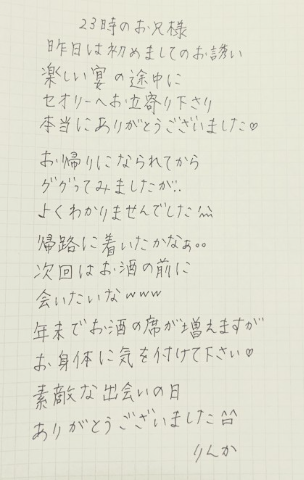 23時のお兄様
昨日は初めましてのお誘い
楽しい宴の途中に
セオリーへお立寄り下さり
本当にありがとうございました♡
お帰りになられてから
ググってみましたが..
よくわかりませんでした^^;
帰路に着いたかなぁ。。
次回はお酒の前に
会いたいなwww
年末でお酒の席が増えますが
お身体に気を付けて下さい♡
素敵な出会いの日
ありがとうございました^^
りんか